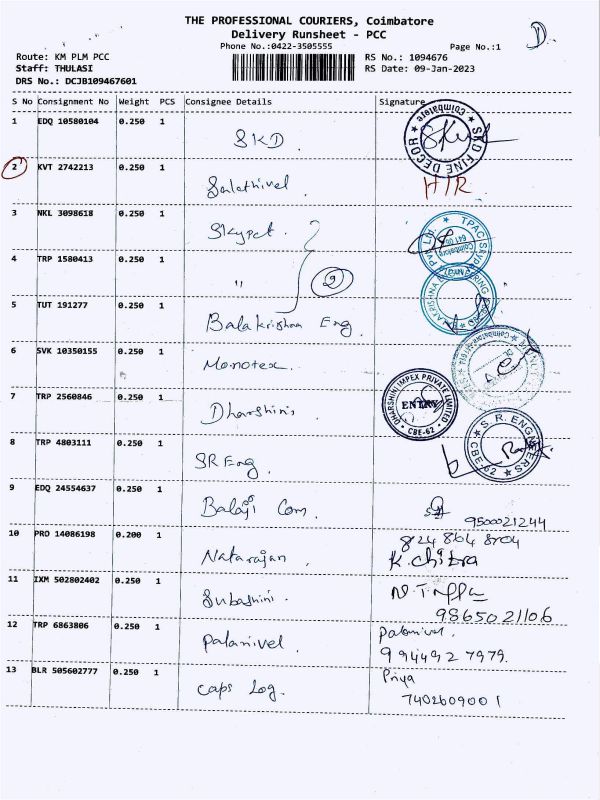 THE PROFESSIONAL COURIERS, Coimbatore
Delivery Runsheet - PCC
D.
Phone No.:0422-3505555
Page No.:1
Route: KM PLM PCC
RS No.: 1094676
Staff: THULASI
RS Date: 09-Jan-2023
DRS No.: DCJB109467601
S No Consignment No Weight PCS Consignee Details Signature
1 EDQ 10580104 0.250 1 SKD
SKD FINE DECOR Coimbatore
2 KVT 2742213 0.250 1 Salathivel H/R
3 NKL 3098618 0.250 1 Skypet.
4 TRP 1580413 0.250 1 " 2
5 TUT 191277 0.250 1 Balakrishna Eng
6 SVK 10350155 0.250 1 Monotex.
7 TRP 2560846 0.250 1 Dharshinis
DHARSHINI IMPEX PRIVATE LIMITED
ENTRY
CBE-62
8 TRP 4803111 0.250 1 SR Eng.
S. R. ENGINEERS CBE-62
9 EDQ 24554637 0.250 1 Balaji Com.
9500021244
10 PRO 14086198 0.200 1 Natarajan.
824 864 8704
K. chitra
11 IXM 502802402 0.250 1 Subashini.
9865021106
12 TRP 6863806 0.250 1 palanivel.
palanivel.
9 94492 7979.
13 BLR 505602777 0.250 1 caps Log.
Priya
7402609001